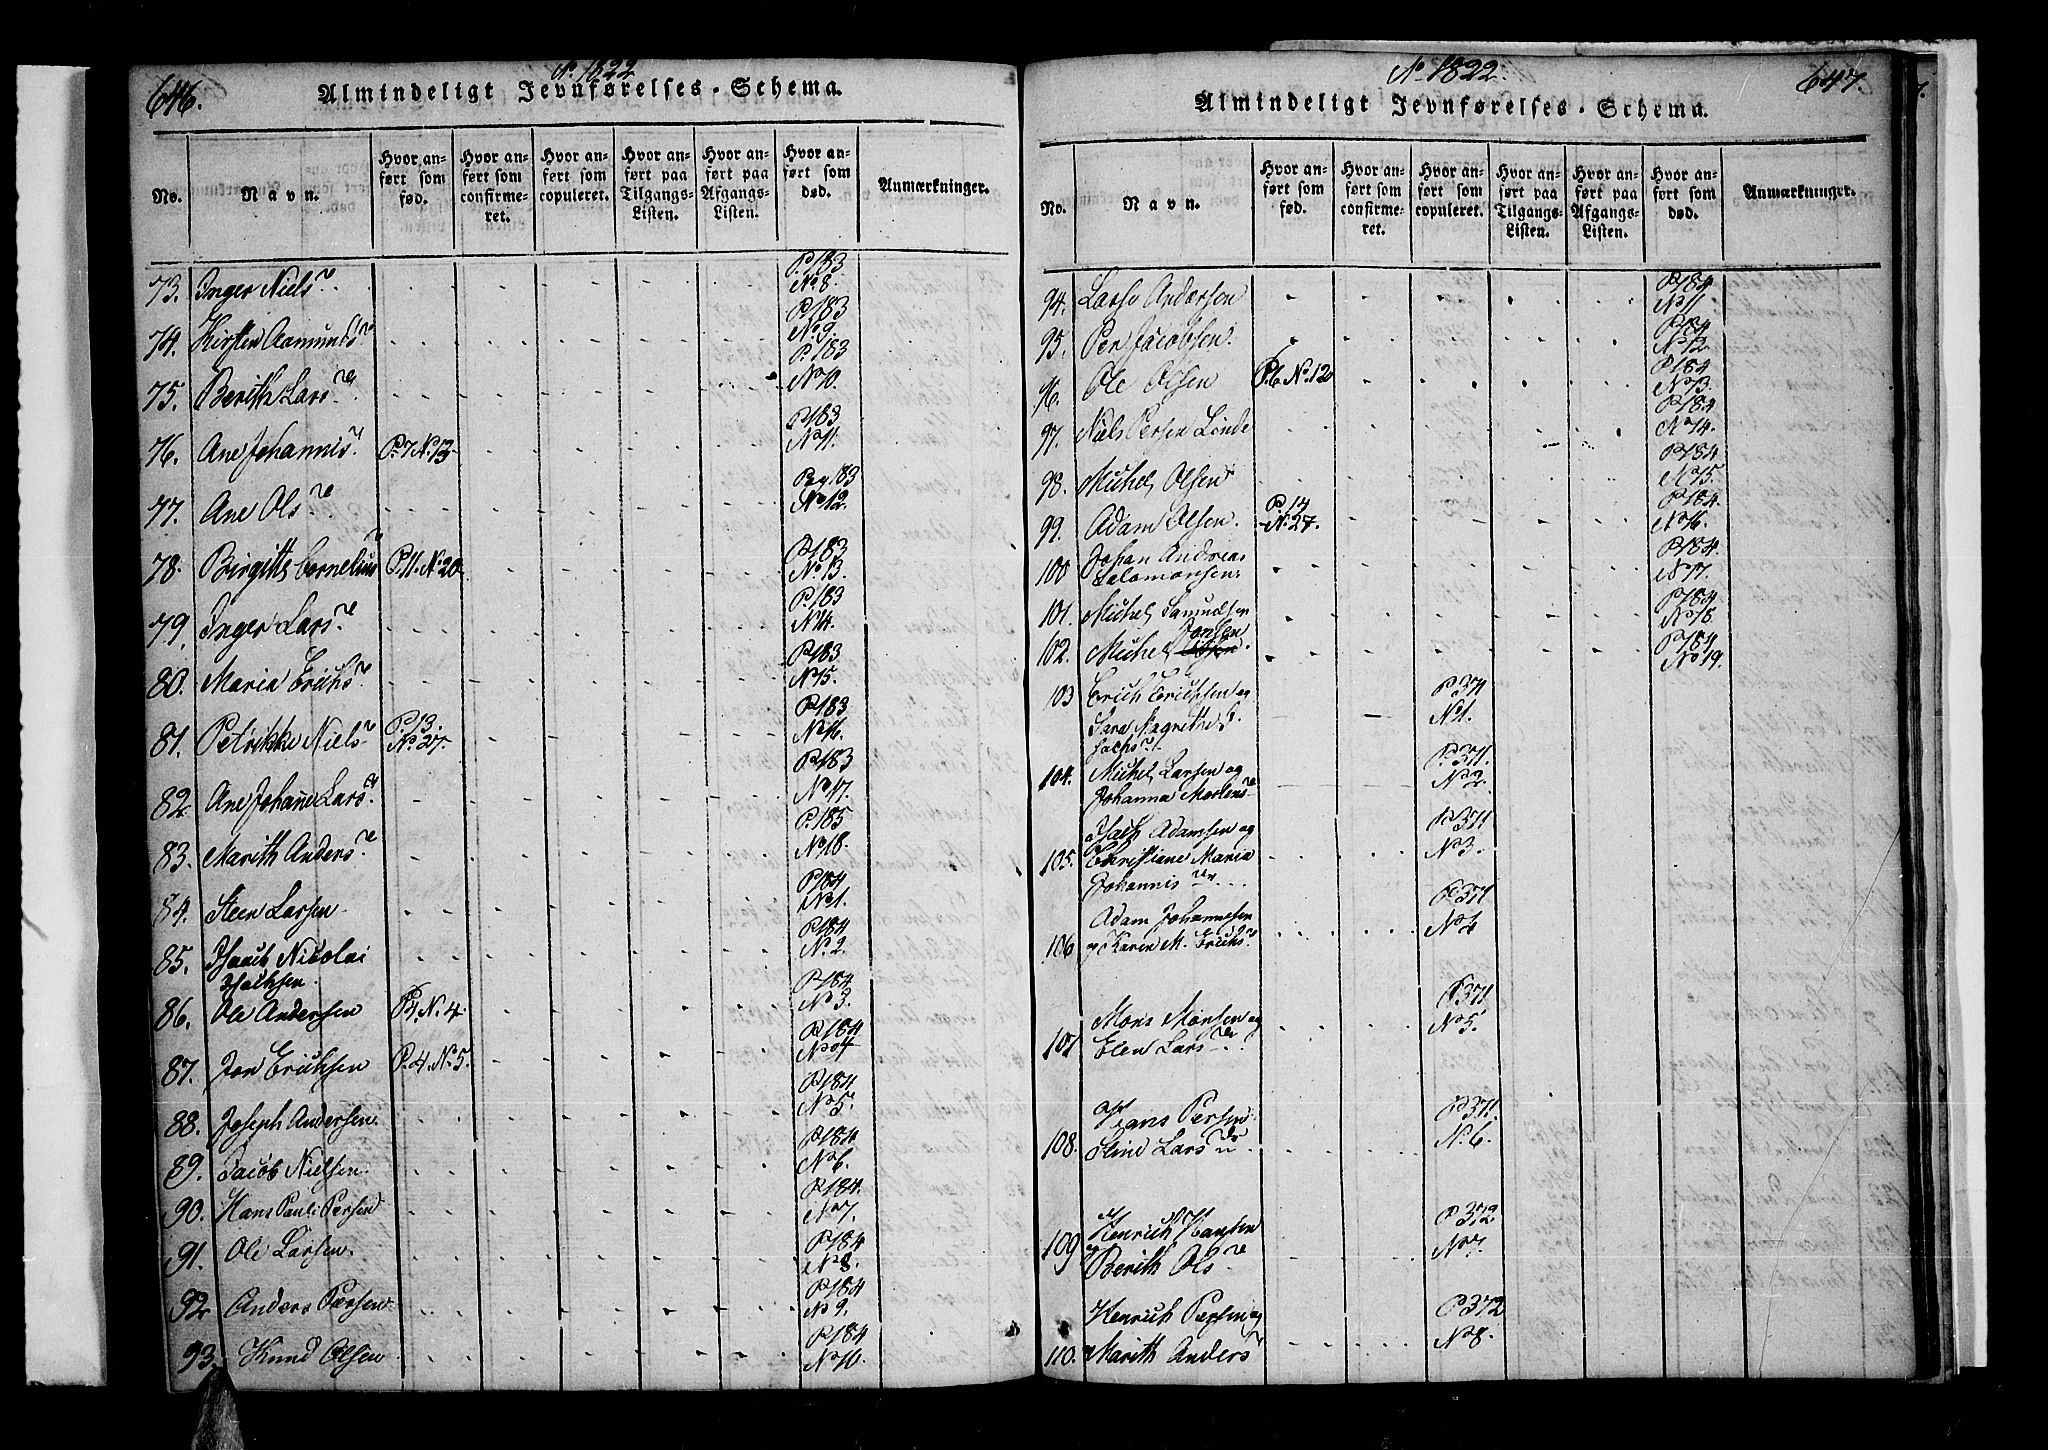 646.
No. 1822
Almindeligt Jevnførelses-Schema.
No.
Navn.
Hvor an-
ført som
fød.
Hvor an-
ført som
confirme-
ret.
Hvor an-
ført som
copuleret.
Hvor an-
ført paa
Tilgangs-
Listen.
Hvor an-
ført paa
Afgangs-
Listen.
Hvor an-
ført som
død.
Anmærkninger.
73. Inger Niels P. 183 No. 8.
74. Kirsten Aamunds P. 183 No. 9.
75. Berith Lars P. 183 No. 10.
76. Ane Johannis P. 7 No. 13 P. 183 No. 11.
77. Ane Ols Pag 183 No. 12.
78. Birgitte Cornelius P. 11. No. 20 P. 183 No. 13.
79. Inger Lars P. 183 No. 14.
80. Maria Erichs P. 183 No. 15.
81. Petrikke Niels P. 13. No. 27. P. 183 No. 16.
82 Ane Johane Lars P. 183 No. 17.
83. Marith Anders P. 185 No. 18.
84. Steen Larsen P. 184 No. 1.
85. Isaach Nicolai
Isachsen. P. 184 No. 2.
86. Ole Andersen P. 4. No. 4. P. 184 No. 3.
87. Jon Erichsen P. 4. No. 5. P. 184 No. 4
88. Joseph Andersen P. 184 No. 5.
89. Jacob Nielsen P. 184 No. 6.
90. Hans Pauli Persen P. 184. No. 7.
91. Ole Larsen P. 184 No. 8.
92 Anders Persen P. 184 No. 9.
93. Knud Olsen P. 184 No. 10.
647.
No. 1822.
Almindeligt Jevnførelses-Schema.
No.
Navn.
Hvor an-
ført som
fød.
Hvor an-
ført som
confirme-
ret.
Hvor an-
ført som
copuleret.
Hvor an-
ført paa
Tilgangs-
Listen.
Hvor an-
ført paa
Afgangs-
Listen.
Hvor an-
ført som
død.
Anmærkninger.
94. Lars Andersen P. 184 No. 11
95. Per Jacobsen P. 184 No. 12
96. Ole Olsen P. 6 No. 12 P. 184 No. 13.
97. Niels Persen Linde P. 184 No. 14.
98. Michel Olsen P. 184 No. 15.
99. Adam Olsen P. 14 No. 27. P. 184 No. 16.
100 Johan Andreas
Salomonsen P. 184 No. 17.
101. Michel Samuelsen P. 184 No. 18.
102. Michel Jonsen P. 184 No. 19
103 Erich Erichsen og
Sara Magrethe
Isachs P. 371 No. 1.
104. Michel Larsen og
Johanna Mortens P. 371. No. 2.
105. Isach Adamsen og
Christiane Maria
Johannis P. 371 No. 3.
106 Adam Johannesen
og Karen M. Erichs P. 371 No. 4
107 Mons Monsen og
Elen Lars P. 371 No. 5.
108. Hans Persen
Stine Lars P. 371. No. 6.
109 Henrich Hansen
Berith Ols P. 372 No. 7.
110. Henrich Persen og
Marith Anders P. 372 No. 8.